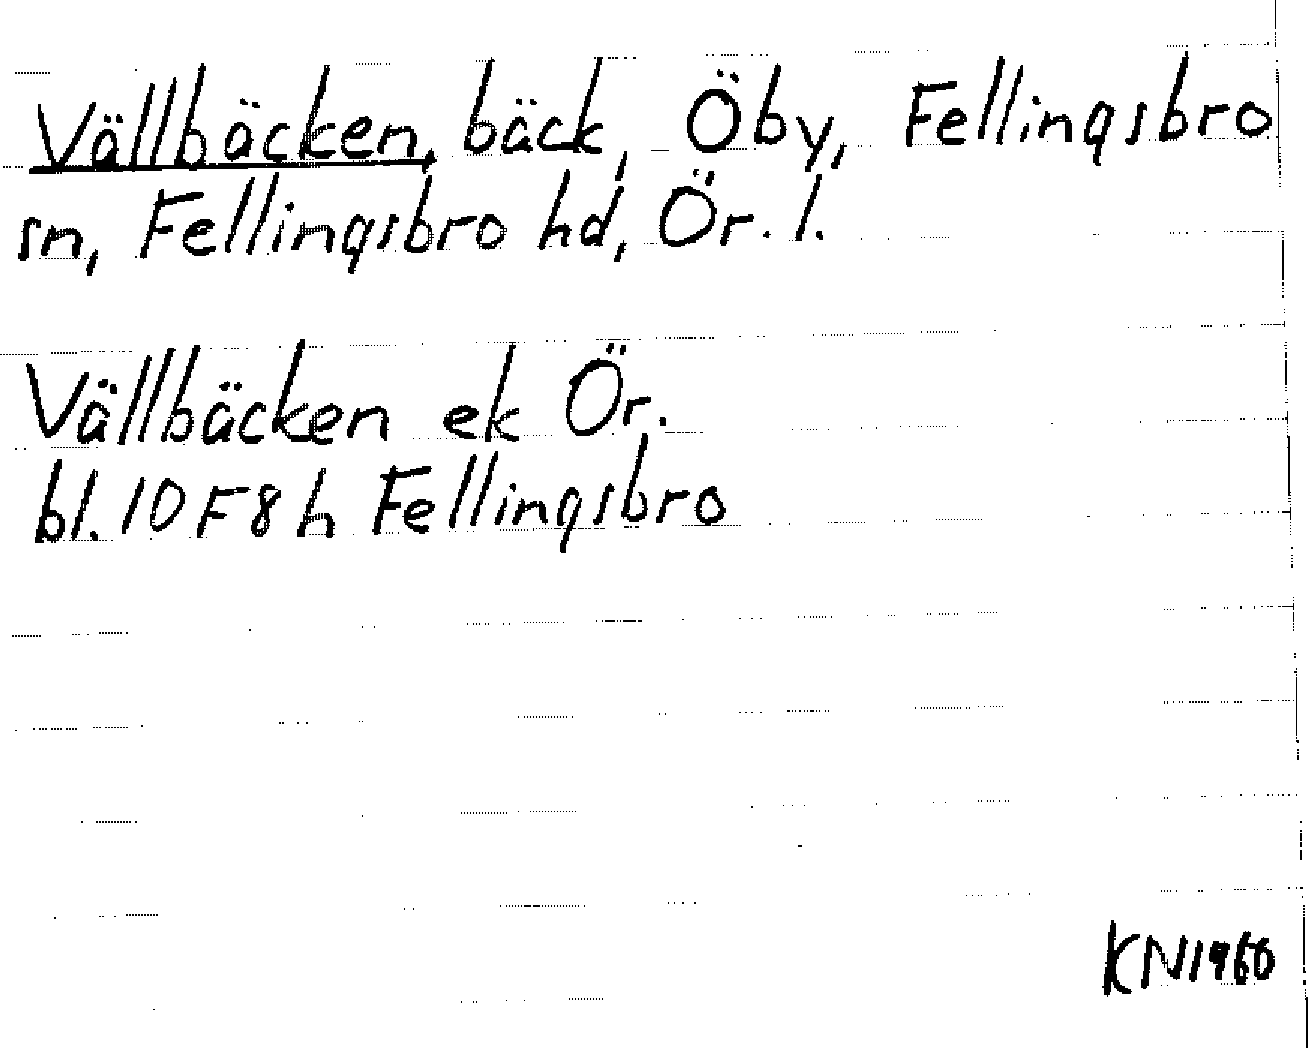 Vällbäcken, bäck, Öby, Fellingsbro
sn, Fellingsbro hd, Ör. l.
Vällbäcken ek Ör.
bl. 10F8h Fellingsbro
KN1966